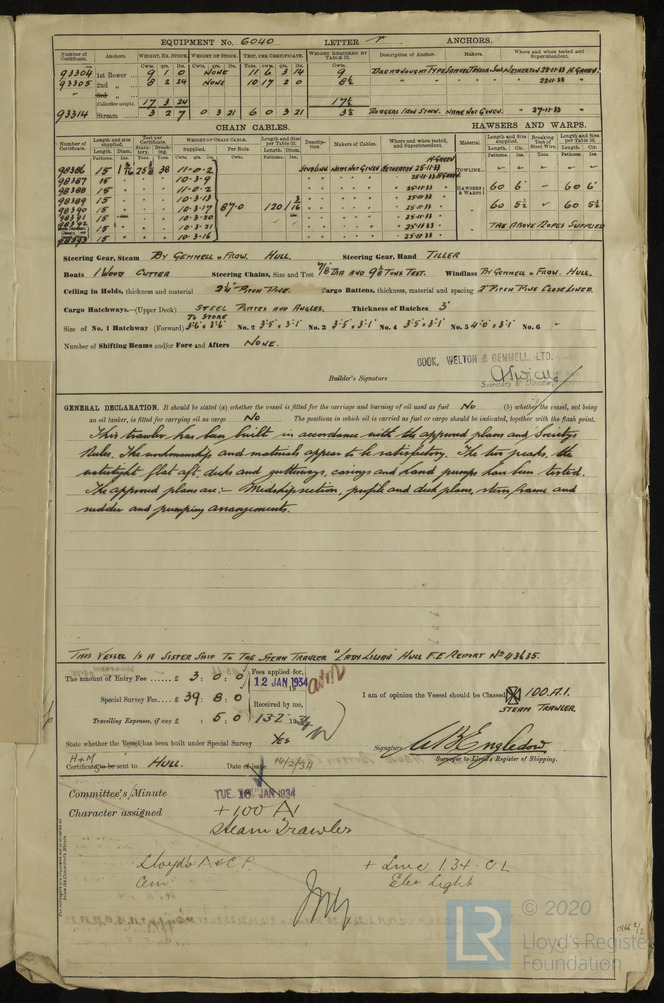 EQUIPMENT No. 6040 LETTER r ANCHORS.
Number of Certificate. Anchors. WEIGHT, EX. STOCK WEIGHT OF STOCK. TEST, PER CERTIFICATE. WEIGHT REQUIRED BY TABLE 31. Description of Anchor. Makers. Where and when tested and Superintendent.
Cwts. qrs. lbs. Cwts. qrs. lbs. Tons. cwts. qrs. lbs. Cwts.
93304 1st Bower ... 9 1 0 NONE 11 6 3 14 9 DREADNOUGHT TYPE SAMUEL TAYLOR & SONS NETHERTON 22-11-33 H. GREEN.
93305 2nd " ... 8 2 24 NONE 10 17 2 0 8½ " " 22-11-33 "
" 3rd " ...
Collective weight. 17 3 24 17½
93314 Stream ... 3 2 7 0 3 21 6 0 3 21 3½ RODGERS IRON STOCK. NAME NOT GIVEN. " 27-11-33 "
CHAIN CABLES. HAWSERS AND WARPS.
Number of Certificate. Length and size supplied. Test per Certificate. WEIGHT OF CHAIN CABLE. Length and Size per Table 31. Description. Makers of Cables. Where and when tested, and Superintendent. Material Length and Size supplied. Breaking Test of Steel Wire. Length and Size per Table 31.
Length. Diam. Statutory. Breaking. Supplied. Per Rule. Length. Diam. Length. Cir. Length. Cir.
Fathoms. Ins. Tons. Tons. Cwts. qrs. lbs. Cwts. Fathoms. Ins. Fathoms. Ins. Tons. Fathoms. Ins.
98386 15 1 3/16 38 11-0-2 STUD LINK NAME NOT GIVEN NETHERTON 25-11-33 H. GREEN TOWLINE
98387 15 " " " 10-3-9 " " 25-11-33 H. GREEN
98388 15 " " " 11-0-2 " " 25-11-33 " HAWSERS & WARPS 60 6" - 60 6"
98389 15 " " " 10-3-13 " " 25-11-33 "
98390 15 " " " 10-3-17 87·0 120 1 3/16 " " 25-11-33 " 60 5½ - 60 5½
98391 15 " " " 10-3-20 " " 25-11-33 "
98392 15 " " " 10-3-21 " " 25-11-33 " THE ABOVE ROPES SUPPLIED
98393 15 " " " 10-3-16 " " 25-11-33 "
Steering Gear, Steam BY GEMMELL & FROW. HULL. Steering Gear, Hand TILLER
Boats 1 WOOD CUTTER Steering Chains, Size and Test DIA AND 9½ TONS TEST. Windlass BY GEMMELL & FROW. HULL.
Ceiling in Holds, thickness and material 2½" PITCH PINE. Cargo Battens, thickness, material and spacing 2" PITCH PINE CLOSE LINED.
Cargo Hatchways.—(Upper Deck) STEEL PLATES AND ANGLES. Thickness of Hatches 3"
TO STORE
Size of No. 1 Hatchway (Forward) 3'·6"x3'·6" No. 2 3'·5"x3'·1" No. 3 3'·5"x3'·1" No. 4 3'·5"x3'·1" No. 5 4'·0"x3'·1" No. 6 "
Number of Shifting Beams and/or Fore and Afters NONE.
COOK, WELTON & GEMMELL, LTD.
Builder's Signature
Secretary & Director.
GENERAL DECLARATION. It should be stated (a) whether the vessel is fitted for the carriage and burning of oil used as fuel No (b) whether the vessel, not being
an oil tanker, is fitted for carrying oil as cargo No The positions in which oil is carried as fuel or cargo should be indicated, together with the flash point.
This trawler has been built in accordance with the approved plans and Society's
Rules. The workmanship and materials appear to be satisfactory. The two peaks, the
watertight flat aft, decks and gutterways, casings and hand pumps has been tested.
The approved plans are:- Midship section, profile and deck plans, stern frame and
rudder and pumping arrangements.
THIS VESSEL IS A SISTER SHIP TO THE STEAM TRAWLER "LADY LILIAN" HULL F.E REPORT No 43635.
The amount of Entry Fee ...... £ 3 : 0 : 0 Fees applied for,
12 JAN 1934
Special Survey Fee... £ 39 : 8 : 0 I am of opinion the Vessel should be Classed 100.A.1.
Received by me, STEAM TRAWLER
Travelling Expenses, if any £ : 5 : 0 13·2 1934
State whether the Vessel has been built under Special Survey Yes
Signature A B Engledow
H+M
Certificate to be sent to HULL. Date of issue 14/2/34 Surveyor to Lloyd's Register of Shipping.
Committee's Minute TUE. 16 JAN 1934
Character assigned +100 A1
Steam Trawler
Lloyds A&CP + LMC 1.34. CL
Elec Light
© 2020
LR Lloyd's Register
Foundation
0166 2/2